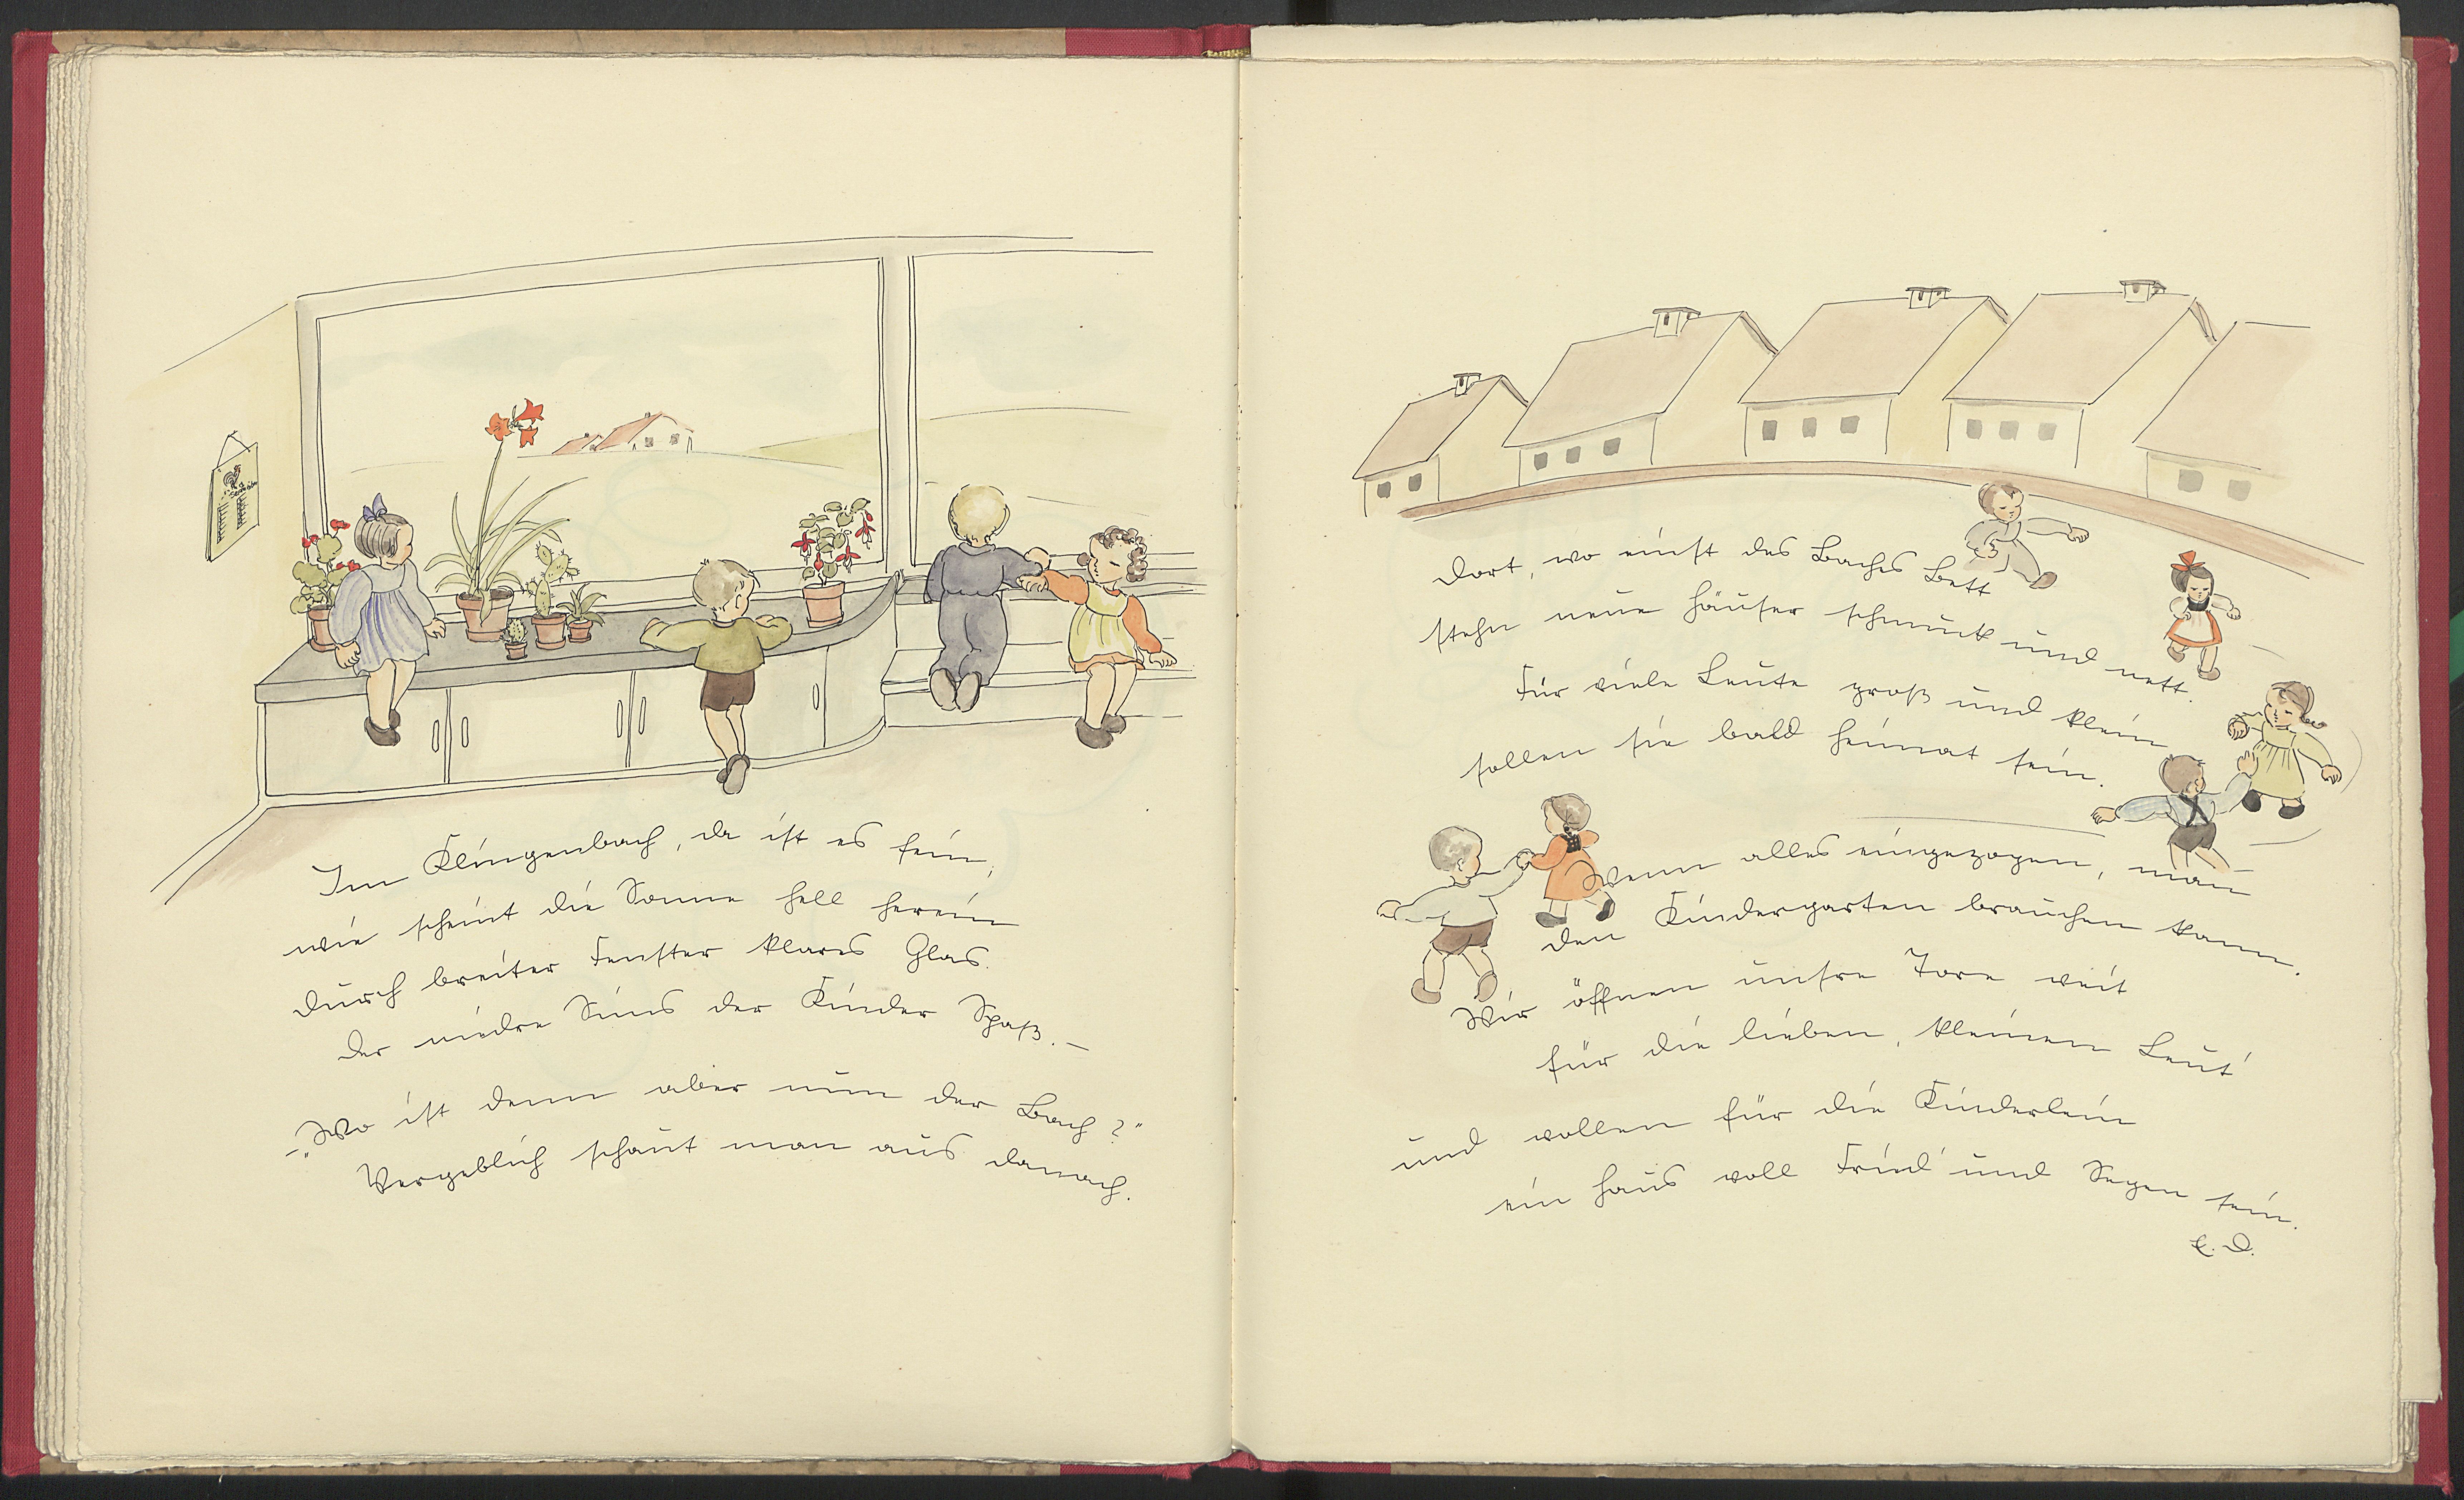 Im Klingenbach, da ist es fein,
wie scheint die Sonne hell herein
durch breiter Fenster klares Glas.
Der niedre Sims der Kinder Spaß. –
– „Wo ist denn aber nun der Bach?"
Vergeblich schaut man aus danach.
Dort, wo einst des Baches Bett
stehn neue Häuser schmuck und nett.
Für viele Leute groß und klein
sollen sie bald Heimat sein.
Wenn alles eingezogen, man
den Kindergarten brauchen kann.
Wir öffnen unsre Tore weit
für die lieben, kleinen Leut'
und wollen für die Kinderlein
ein Haus voll Fried' und Segen sein.
E. D.